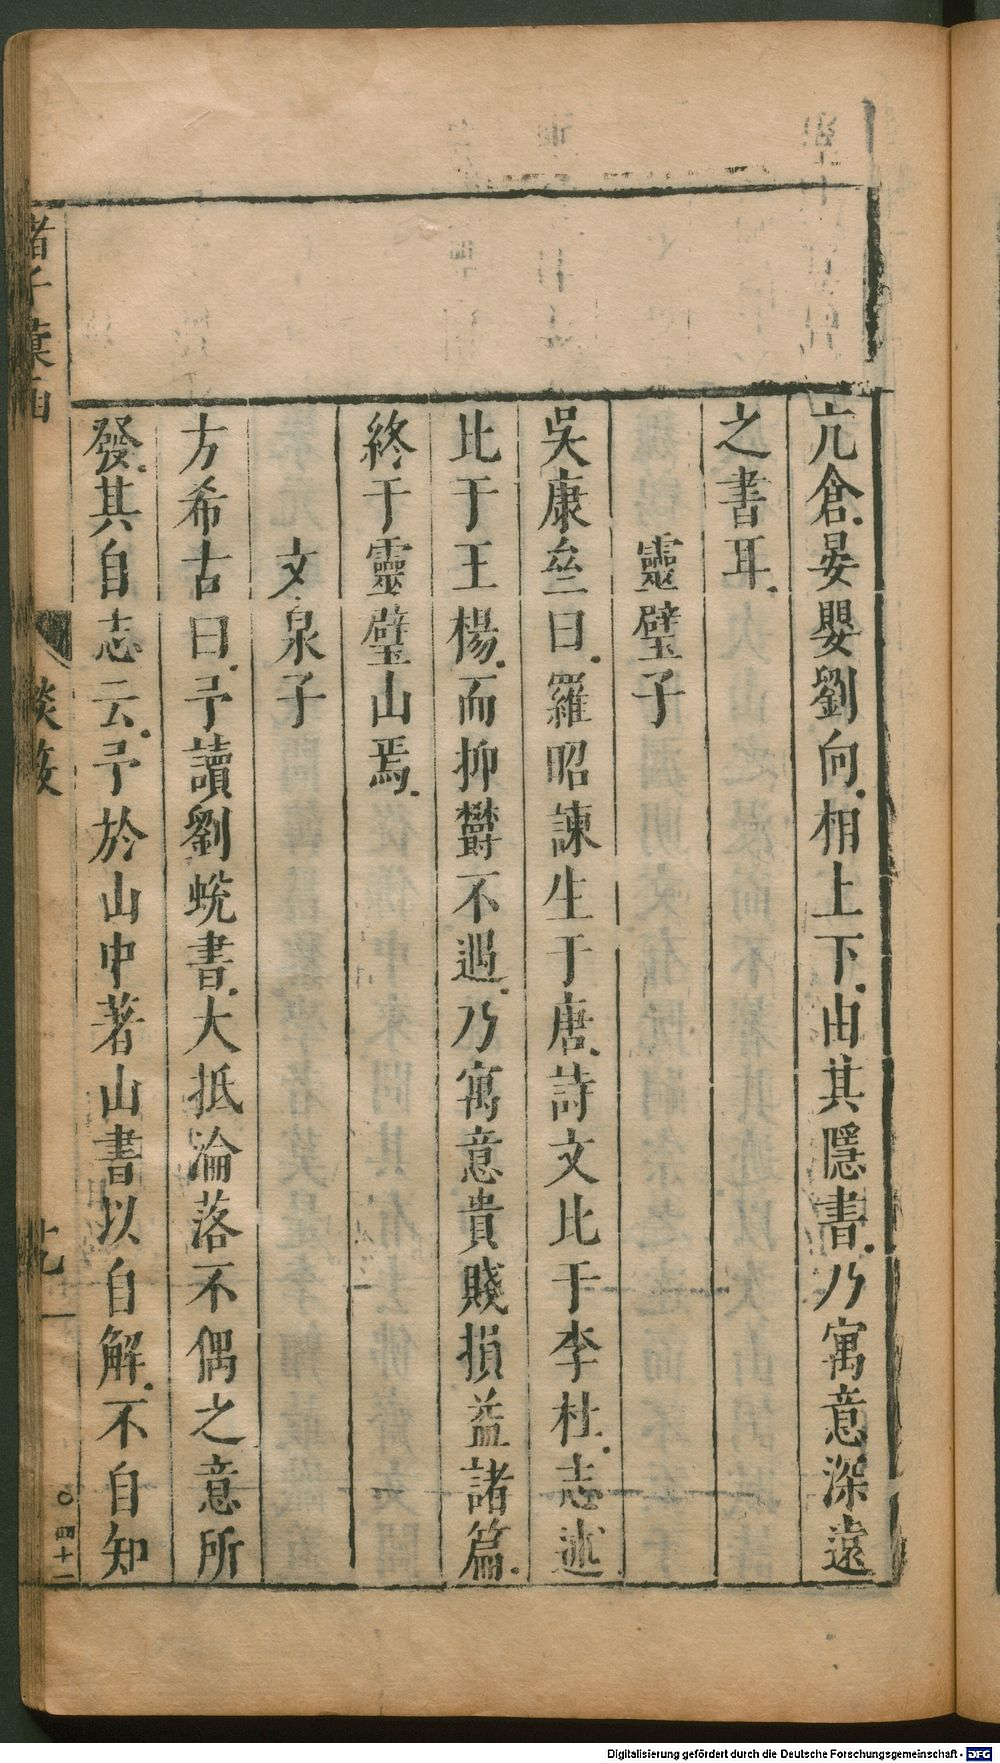 亢倉晏嬰劉向相上下由其隱書乃寓意深遠
之書耳
靈璧子
吳康叁曰羅昭諫生于唐詩文比于李杜志述
比于王楊而抑欝不遇乃寓意貴賤損益諸篇
終于靈璧山焉
文泉子
方希古曰予讀劉蛻書大抵淪落不偶之意所
發其自志云予於山中著山書以自解不自知
諸子彙函
談藪
四十二
Digitalisierung gefördert durch die Deutsche Forschungsgemeinschaft - DFG